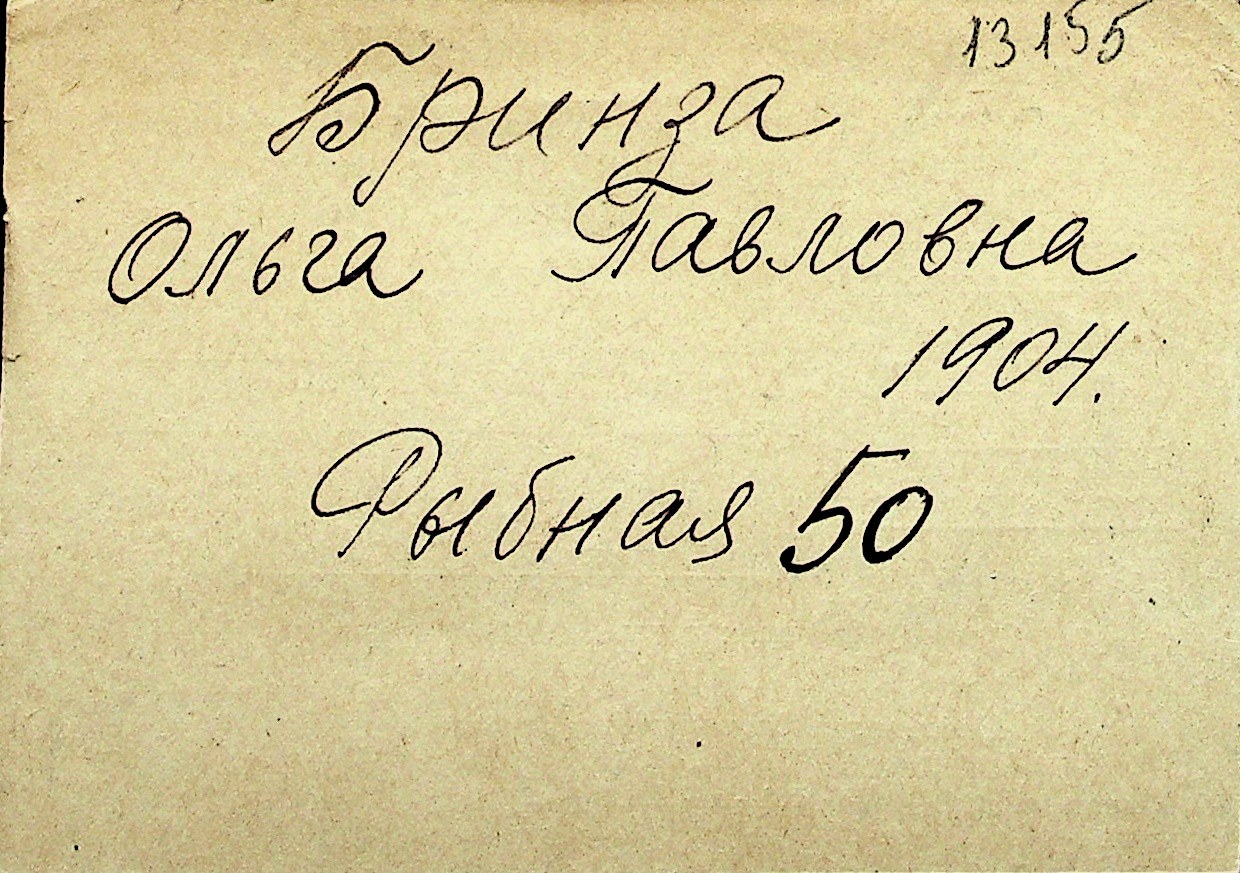 13155
Бринза
Ольга Павловна
1904.
Рыбная 50